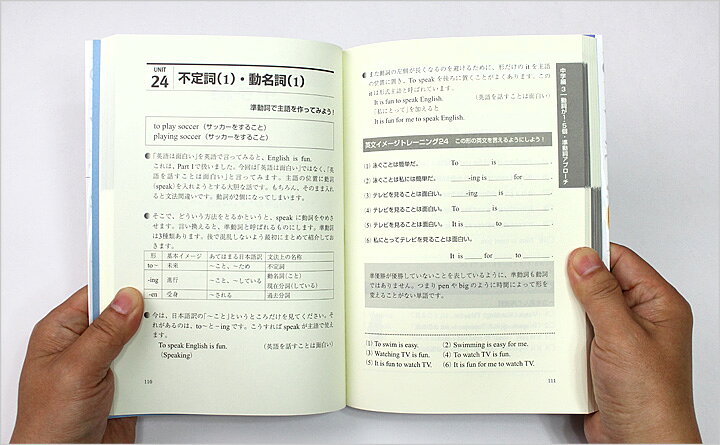 UNIT
24 不定詞(1)・動名詞(1)
準動詞で主語を作ってみよう！
to play soccer（サッカーをすること）
playing soccer（サッカーをすること）
「英語は面白い」を英語で言ってみると、English is fun.
これは、Part 1で扱いました。今回は「英語は面白い」ではなく、「英
語を話すことは面白い」と言ってみます。主語の位置に動詞
(speak)を入れようとする大胆な話です。もちろん、そのまま入れ
ると文法間違いです。動詞が2個になってしまいます。
そこで、どういう方法をとるかというと、speak に動詞をやめさ
せます。言い換えると、準動詞と呼ばれるものにします。準動詞
は3種類あります。後で混乱しないよう最初にまとめて紹介してお
きます。
形 基本イメージ あてはまる日本語訳 文法上の名称
to～ 未来 ～こと、～ため 不定詞
-ing 進行 ～こと、～している 動名詞(こと)
現在分詞(している)
-en 受身 ～される 過去分詞
今は、日本語訳の「～こと」というところだけを見てください。そ
れがあるのは、to～と～ing です。こうすれば speak が主語で使え
ます。
To speak English is fun. （英語を話すことは面白い）
(Speaking)
110
また動詞の左側が長くなるのを避けるために、形だけの it を主語
の位置に置き、To speak を後ろに置くことがよくあります。この
it は形式主語と呼ばれています。
It is fun to speak English. （英語を話すことは面白い）
「私にとって」を加えると
It is fun for me to speak English.
英文イメージトレーニング24 この形の英文を言えるようにしよう！
(1) 泳ぐことは簡単だ。 To ＿ is ＿.
(2) 泳ぐことは私には簡単だ。 ＿-ing is ＿ for ＿.
(3) テレビを見ることは面白い。 ＿-ing ＿ is ＿.
(4) テレビを見ることは面白い。 To ＿ ＿ is ＿.
(5) テレビを見ることは面白い。 It is ＿ to ＿ ＿.
(6) 私にとってテレビを見ることは面白い。
It is ＿ for ＿ to ＿ ＿.
準優勝が優勝していないことを表しているように、準動詞も動詞
ではありません。つまり pen や big のように時間によって形を
変えることがない単語です。
(1) To swim is easy. (2) Swimming is easy for me.
(3) Watching TV is fun. (4) To watch TV is fun.
(5) It is fun to watch TV. (6) It is fun for me to watch TV.
111
中学編 3 動詞が1.5個・準動詞アプローチ